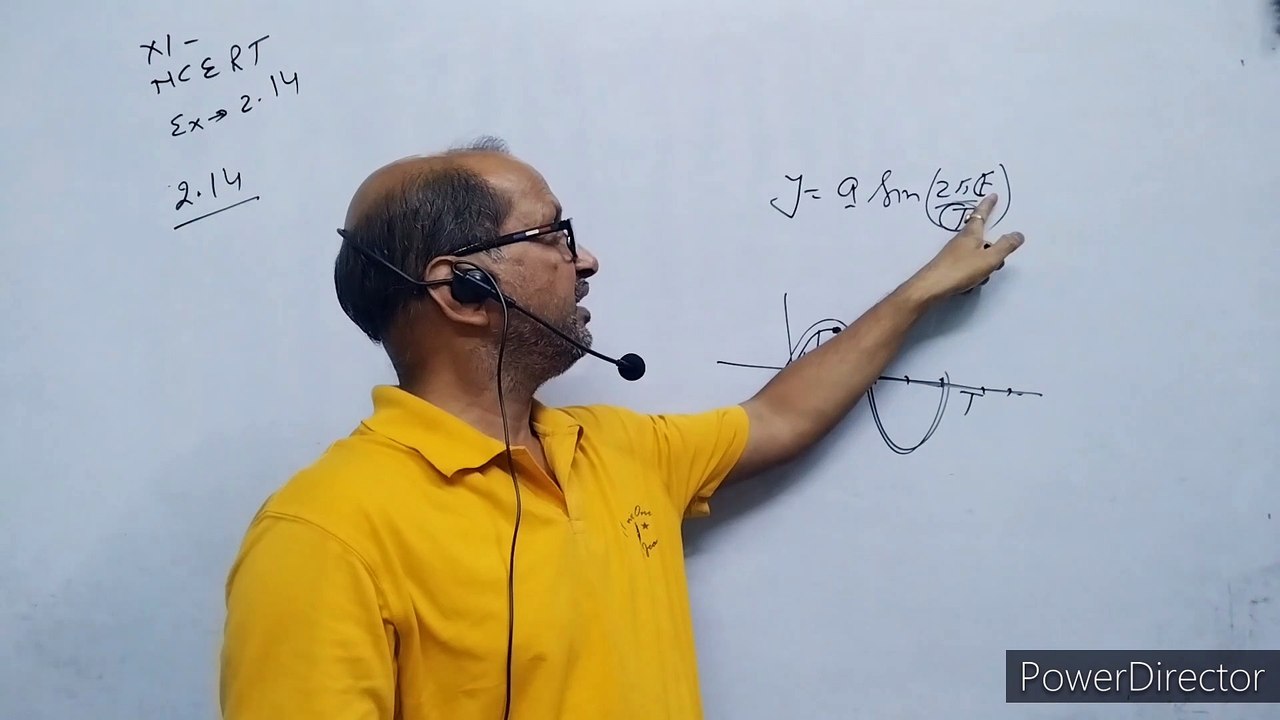 XI -
NCERT
Ex → 2.14
2.14
y = a sin(2πt/T)
T
PowerDirector